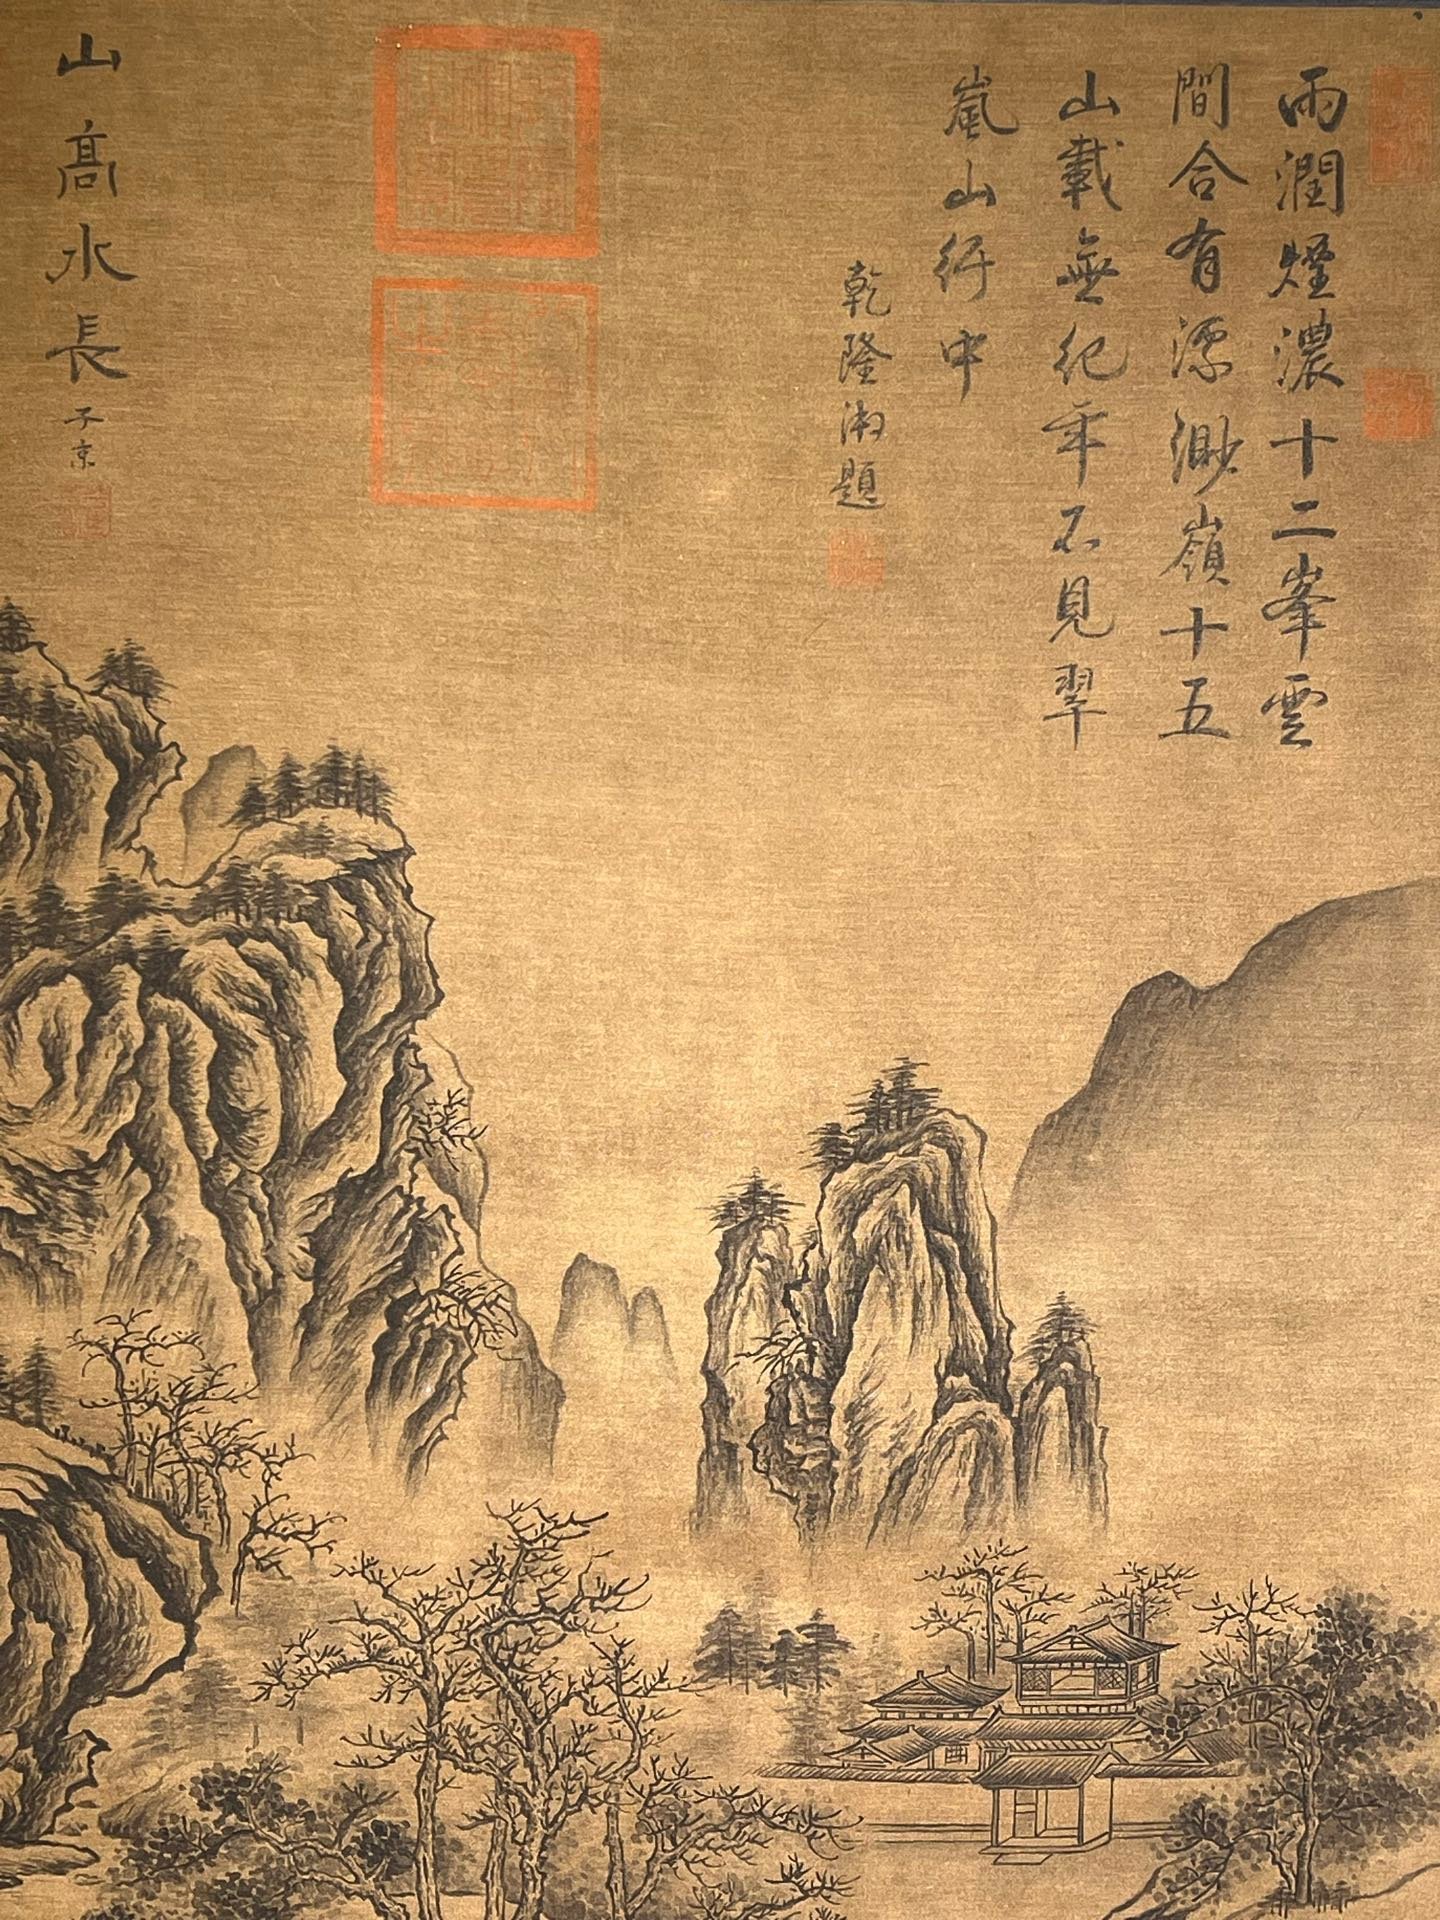 雨潤煙濃十二峯雲
間合有漂渺嶺十五
山載無紀年不見翠
嵐山行中
乾隆淑題
山高水長
子京